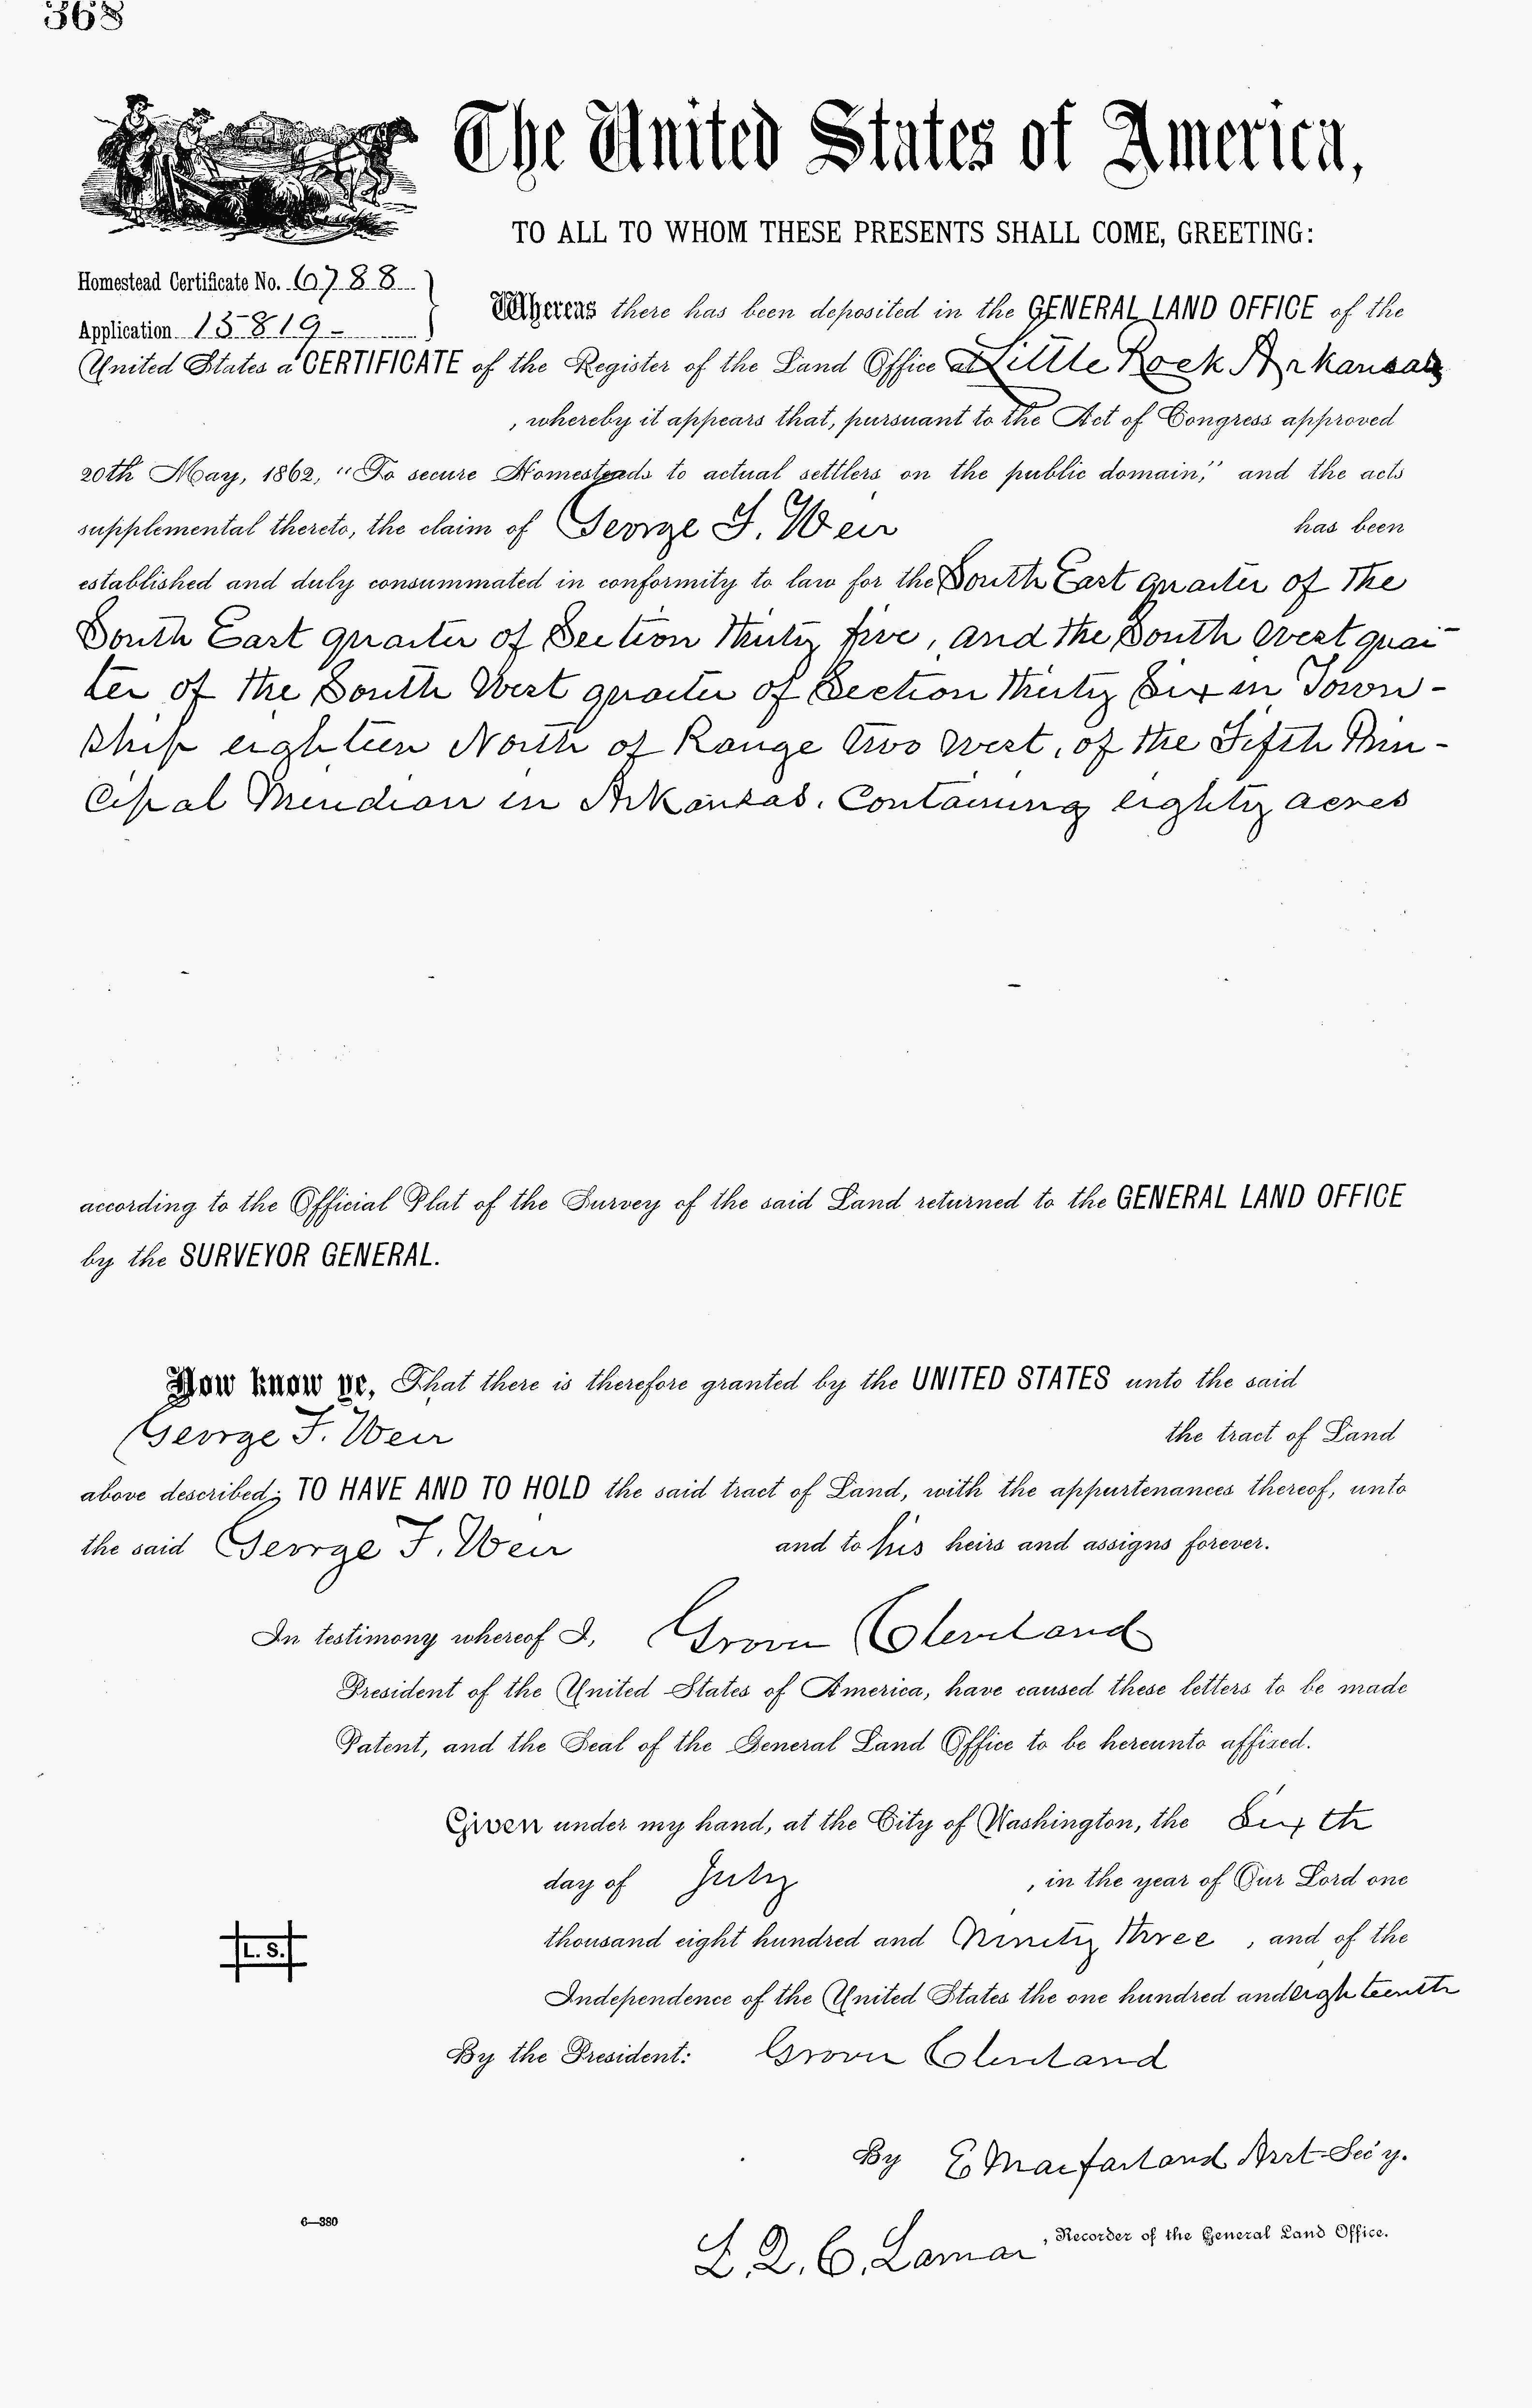 368
The United States of America,
TO ALL TO WHOM THESE PRESENTS SHALL COME, GREETING:
Homestead Certificate No. 6788
Application 15819-
Whereas there has been deposited in the GENERAL LAND OFFICE of the
United States a CERTIFICATE of the Register of the Land Office at Little Rock Arkansas
, whereby it appears that, pursuant to the Act of Congress approved
20th May, 1862, "To secure Homesteads to actual settlers on the public domain," and the acts
supplemental thereto, the claim of George F. Weir has been
established and duly consummated in conformity to law for the South East quarter of the
South East quarter of Section thirty five, and the South West quar
ter of the South West quarter of Section thirty Six in Town-
ship eighteen North of Range two West, of the Fifth Prin-
cipal Meridian in Arkansas. Containing eighty acres
according to the Official Plat of the Survey of the said Land returned to the GENERAL LAND OFFICE
by the SURVEYOR GENERAL.
Now know ye, That there is therefore granted by the UNITED STATES unto the said
George F. Weir the tract of Land
above described; TO HAVE AND TO HOLD the said tract of Land, with the appurtenances thereof, unto
the said George F. Weir and to his heirs and assigns forever.
In testimony whereof I, Grover Cleveland
President of the United States of America, have caused these letters to be made
Patent, and the Seal of the General Land Office to be hereunto affixed.
Given under my hand, at the City of Washington, the Sixth
day of July , in the year of Our Lord one
thousand eight hundred and Ninety three , and of the
Independence of the United States the one hundred and eighteenth
L. S.
By the President: Grover Cleveland
By E Macfarland Asst Sec'y.
6—380
L. Q. C. Lamar , Recorder of the General Land Office.